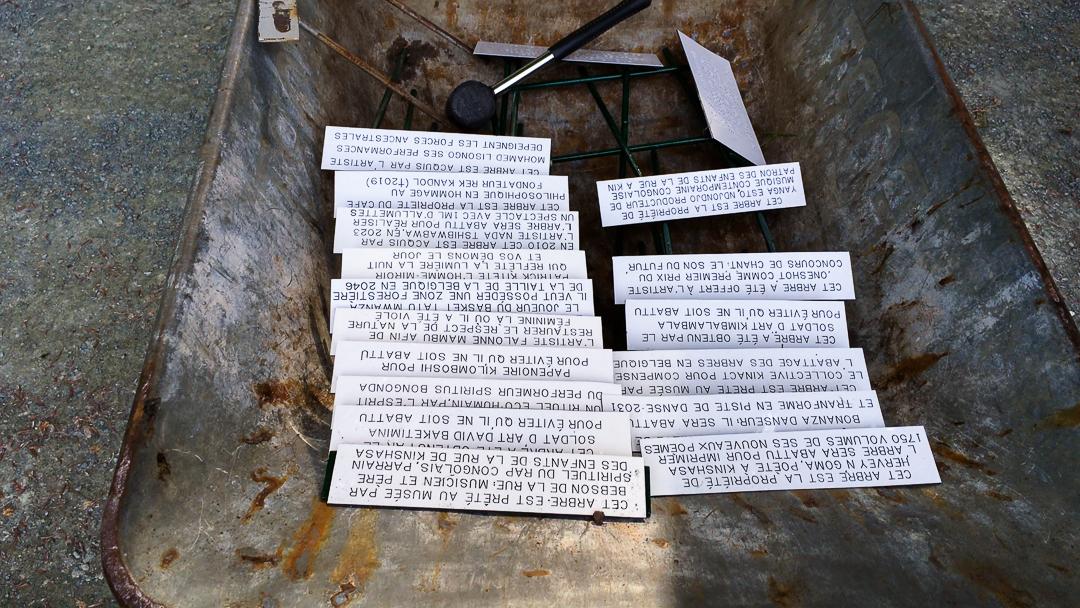 CET ARBRE EST LA PROPRIÉTÉ DE
HERVEY N'GOMA, POÈTE À KINSHASA
L'ARBRE SERA ABATTU POUR IMPRIMER
1750 VOLUMES DE SES NOUVEAUX POÈMES
BONANZA DANSEUR: IL SERA ABATTU
ET TRANFORMÉ EN PISTE DE DANSE-2031
CET ARBRE EST PRÊTÉ AU MUSÉE PAR
LE COLLECTIVE KINACT POUR COMPENSE
L'ABATTAGE DES ARBRES EN BELGIQUE
CET ARBRE A ÉTÉ OBTENU PAR LE
SOLDAT D'ART KIMBALAMBALA
POUR ÉVITER QU'IL NE SOIT ABATTU
CET ARBRE A ÉTÉ OFFERT À L'ARTISTE,
ONESHOT COMME PREMIER PRIX DU
CONCOURS DE CHANT: LE SON DU FUTUR
CET ARBRE EST LA PROPRIÉTÉ DE
YANGA ESTO, NDJONDJO PRODUCTEUR DE
MUSIQUE CONTEMPORAINE CONGOLAISE
PATRON DES ENFANTS DE LA RUE A KIN
CET ARBRE: EST PRÊTÉ AU MUSÉE PAR
BEBSON DE LA RUE: MUSICIEN ET PÈRE
SPIRITUEL DU RAP CONGOLAIS, PARRAIN
DES ENFANTS DE LA RUE DE KINSHASA
SOLDAT D'ART DAVID BAKETIMINA
POUR ÉVITER QU'IL NE SOIT ABATTU
UN RITUEL ECO-HUMAIN, PAR L'ESPRIT
DU PERFORMEUR DU SPIRITUS BONGONDA
PAPENOIRE KILOMBOSHI POUR
POUR ÉVITER QU'IL NE SOIT ABATTU
L'ARTISTE FALONNE MAMBU AFIN DE
RESTAURER LE RESPECT DE LA NATURE
FÉMININE LÀ OÙ IL A ÉTÉ VIOLÉ
LE JOUEUR DU BASKET TATU MWANZA
IL VEUT POSSÉDER UNE ZONE FORESTIÈRE
DE LA TAILLE DE LA BELGIQUE EN 2046
PATRICK KITETE L'HOMME-MIROIR
QUI REFLÈTE LA LUMIÈRE LA NUIT
ET VOS DÉMONS LE JOUR
EN 2010 CET ARBRE EST ACQUIS PAR
L'ARTISTE NADA TSHIBWABWA,EN 2023
L'ARBRE SERA ABATTU POUR RÉALISER
UN SPECTACLE AVEC 1ML D'ALLUMETTES
CET ARBRE EST LA PROPRIÉTÉ DU CAFÉ
PHILOSOPHIQUE EN HOMMAGE AU
FONDATEUR REK KANDOL (†2019)
CET ARBRE EST ACQUIS PAR L'ARTISTE
MOHAMED LISONGO SES PERFORMANCES
DÉPEIGNENT LES FORCES ANCESTRALES